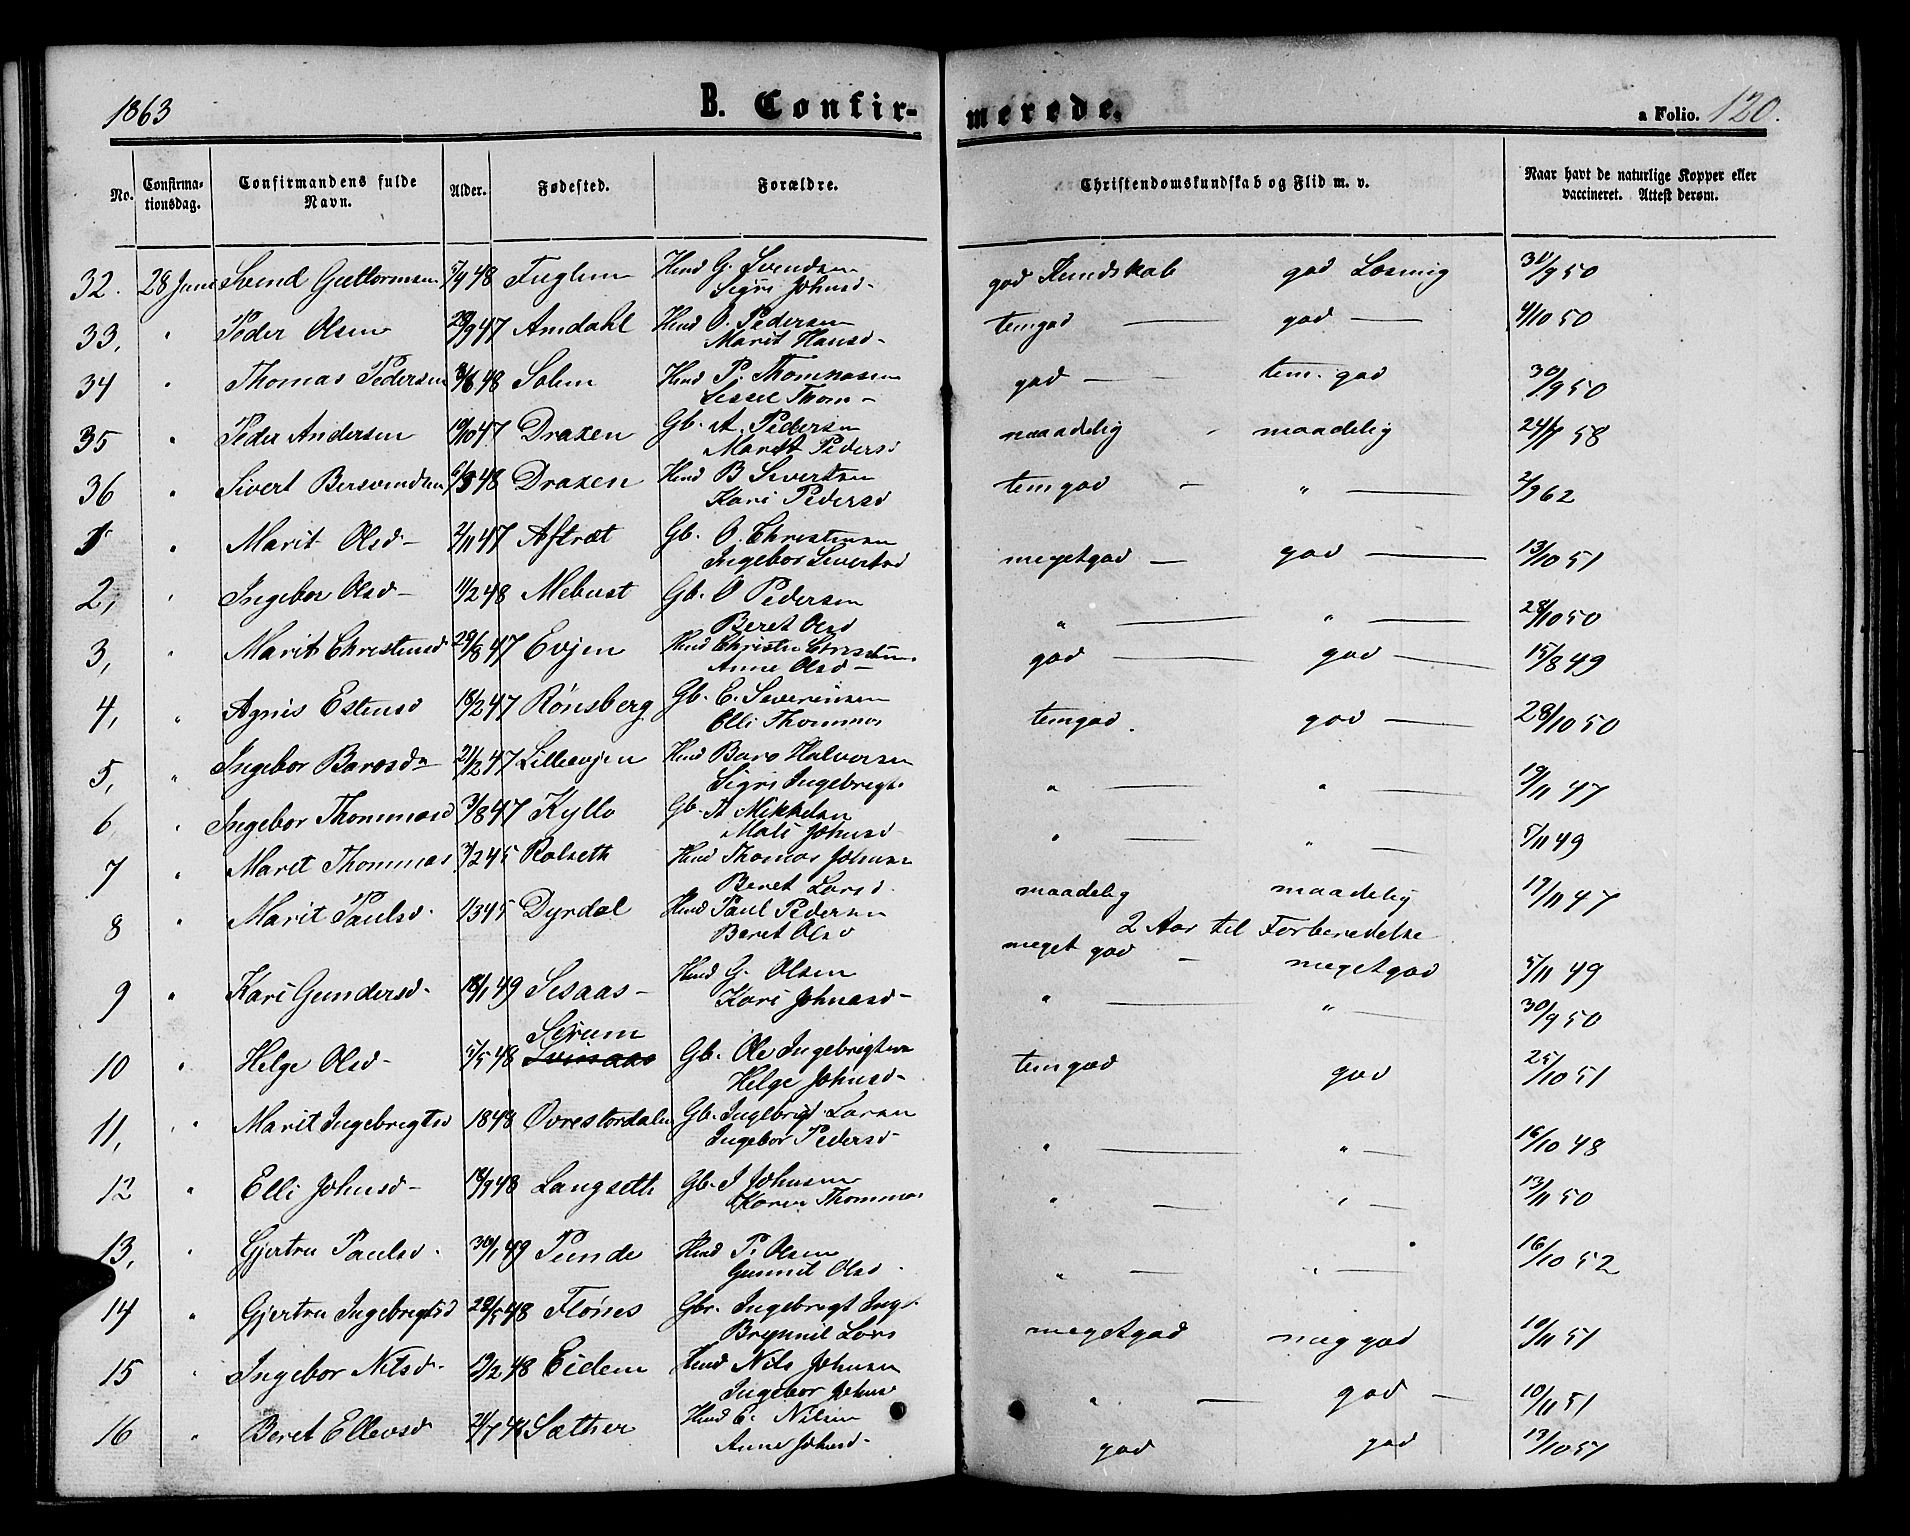 1863
B. Confir-
merede.
a Folio. 120.
No.
Confirma-
tionsdag.
Confirmandens fulde
Navn.
Alder.
Fødested.
Forældre.
Christendomskundskab og Flid m. v.
Naar havt de naturlige Kopper eller
vaccineret. Attest derom.
32. 28 Juni Svend Guttormsen 5/9 48 Fuglem Hmd G. Svendsen god Kundskab god Læsning 30/9 50
Sigri Johnsd-
33, " Peder Olsen 29/9 47 Amdahl Hmd O. Pedersen temgod — god — 4/10 50
Marit Hansd-
34 " Thomas Pedersen 3/8 48 Solem Hmd P. Thomasen god — tem. god 30/9 50
Sissel Thom-
35 " Peder Andersen 19/10 47 Draxen Gb. A. Pedersen maadelig - maadelig 24/7 58
Marit Pedersd
36 " Sivert Bersvendsen 6/3 48 Draxen Hmd B Sivertsen temgod - " — 2/9 62
Kari Pedersd
1 " Marit Olsd- 2/11 47 Aftræt Gb. O. Christensen megetgod — god — 13/10 51
Ingebor Sivertsd
2, " Ingebor Olsd- 11/2 48 Mebust Gb. O Pedersen " — " — 28/10 50
Beret Olsd
3, Marit Christensd 29/8 47 Evjen Hmd Christen Christens. god — god — 15/8 49
Anne Olsd-
4, " Agnis Estensd 18/2 47 Rønsberg Gb. E. Severinsen temgod. god — 28/10 50
Elli Thommas
5, " Ingebor Baros­d 21/2 47 Lilleevjen Hmd Baro Halvorsen " — " — 19/11 47
Sigri Ingebrigts
6 " Ingebor Thommasd 3/8 47 Kyllo Gb. T Mikkelsen " — " — 5/11 49
Mali Johnsd
7 " Marit Thommas 3/2 45 Rolseth Hmd Thomas Johnsen maadelig maadelig 17/11 47
Beret Larsd.
8 " Marit Paulsd. 1/3 45 Dyrdal Hmd Paul Pedersen 2 Aar til Forberedelse
Beret Olsd
meget god - megetgod 5/11 49
9 " Kari Gundersd- 18/1 49 Sesaas- Hmd G. Olsen " — " — 30/9 50
Kari Johnsd-
10 " Helge Olsd- 5/5 48 Gb. Ole Ingebrigtsen temgod god 25/10 51
Helge Johnsd-
11, " Marit Ingebrigtsd 1848 Øvrestordalen Gb. Ingebrigt Larsen " — " - 16/10 48
Ingebor Pedersd-
12 " Elli Johnsd- 18/9 48 Langseth Gb. J Johnsen " — " - 13/11 50
Karen Thommas
13, " Gjertru Paulsd. 30/1 49 Punde Hmd P. Olsen " — " — 16/10 52
Gunnil Olsd.
14 " Gjertru Ingebrigtsd 22/5 48 Flønes Gbr. Ingebrigt Ing. megetgod meg god 10/11 51
Brynnil Lars
15 " Ingebor Nilsd. 19/2 48 Eidem Hmd Nils Johnsen " — god - 10/11 51
Ingebor Johnsd
16 " Beret Ellevsd 21/7 Sæther Hmd E. Nilsen god god 13/10 51
Anne Johnsd-